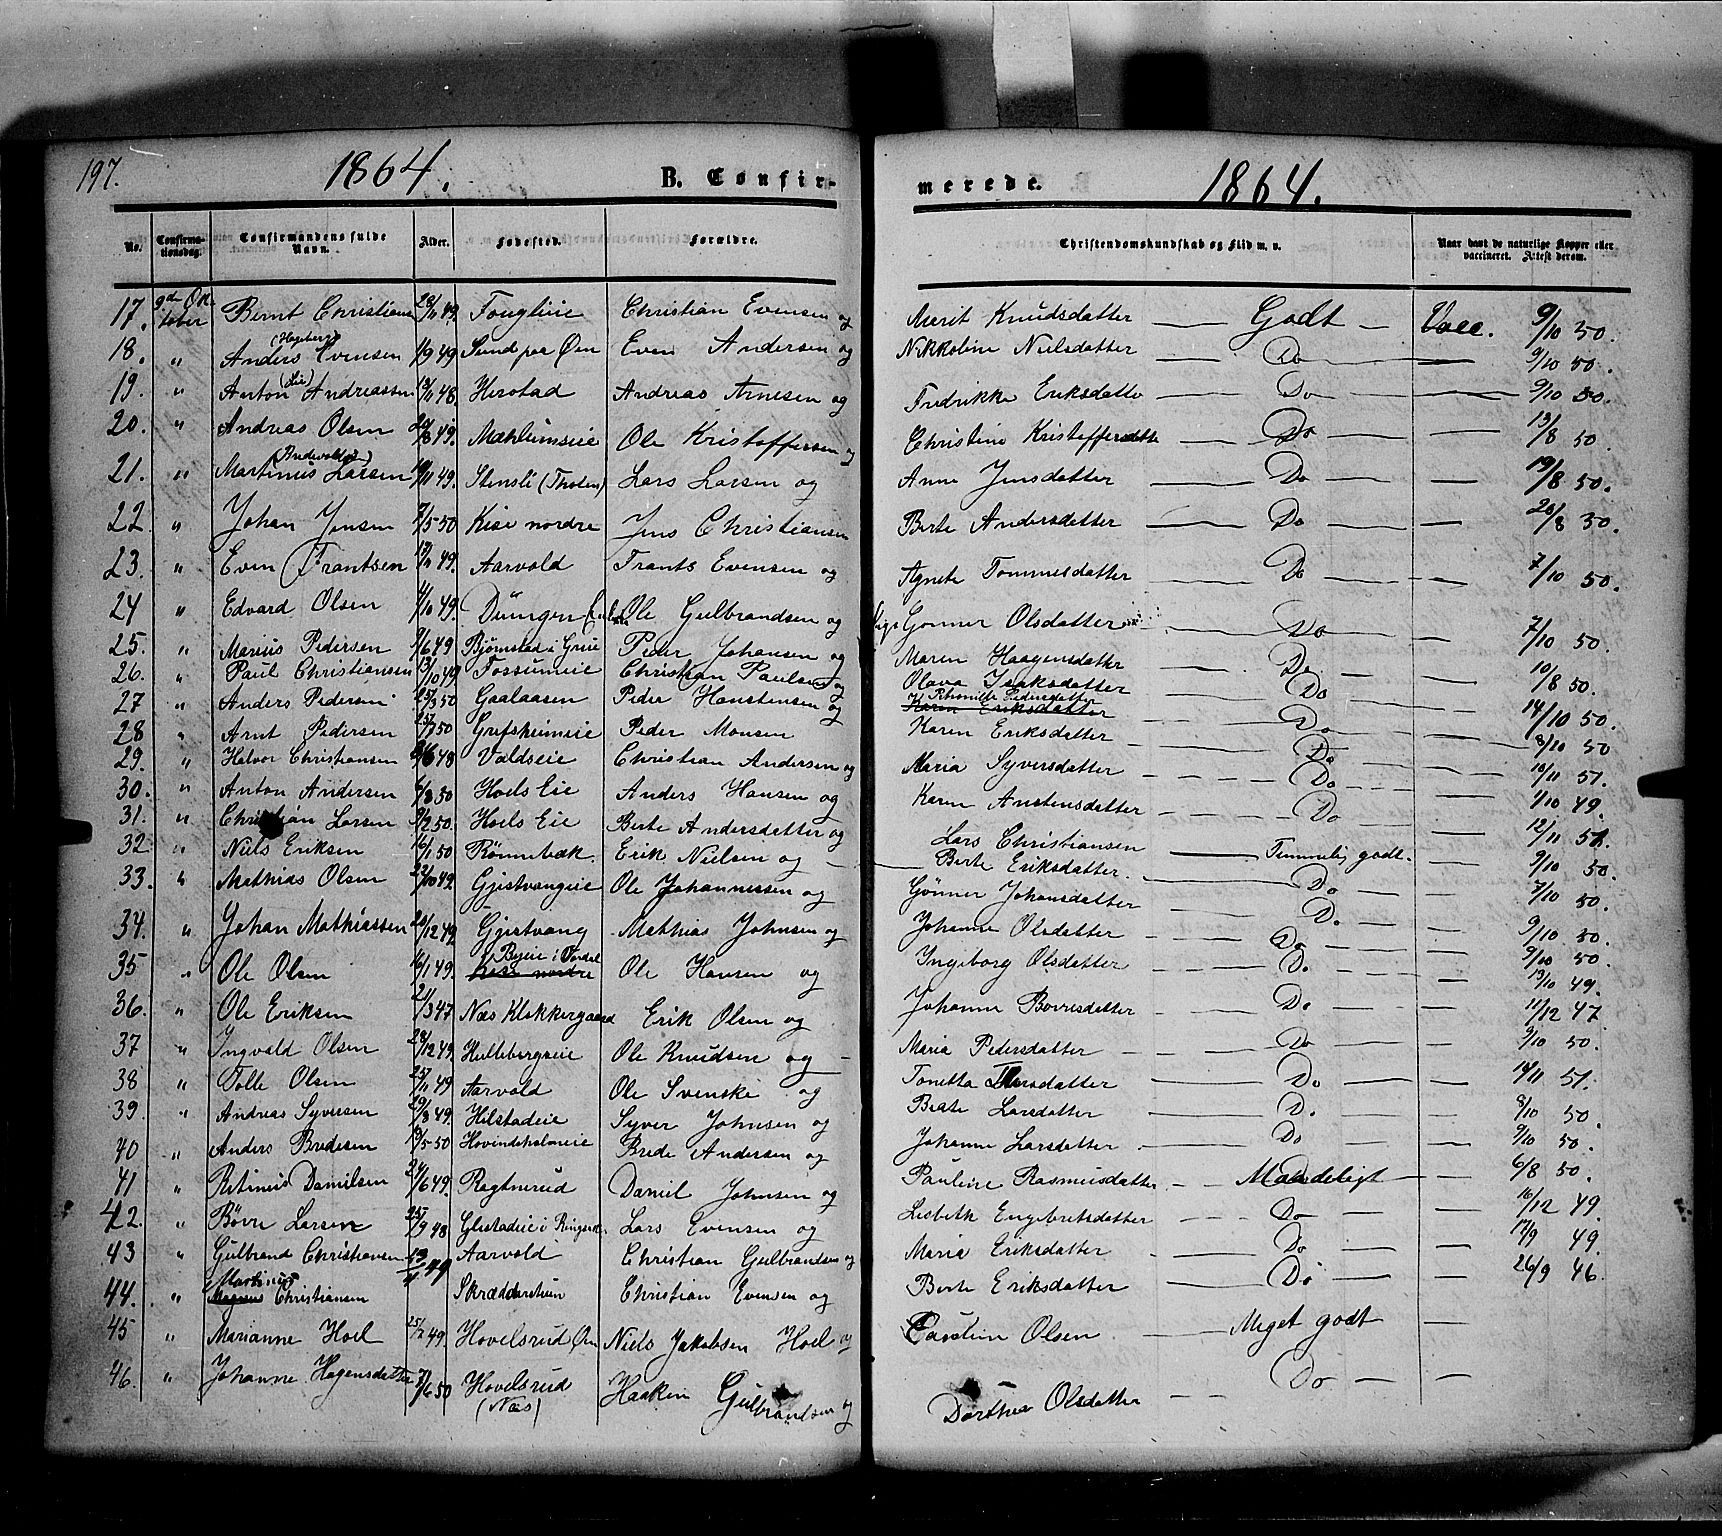 197. 1864. B. Confir-
merede. 1864.
No. Confirma-tionsdag. Confirmandens fulde Navn. Alder. Fødested. Forældre. Christendomskundskab og Flid m. v. Naar havt de naturlige Kopper eller vaccineret. Attest derom.
17. 9de Oktober Bernt Christians 28/11 49. Fonglieie Christian Evensen og Marit Knudsdatter — Godt — Vacc. 9/10 50.
18. " Anders Evensen 1/9 49 Sund paa Øen Even Andersen og Nikkoline Nielsdatter — Do — — 9/10 50.
19. " Anton (Lie) Andreassen 13/11 48. Herstad Andreas Arnesen og Fredrikke Eriksdatte — Do — — 9/10 50.
20. " Andreas Olsen 20/8 49. Mæhlumseie Ole Kristoffersen og Christine Kristoffersdatte — Do — — 13/8 50.
21. " Martinus Larsen 19/11 49. Stensli (Tholen) Lars Larsen og Anne Jensdatter — Do — — 19/8 50.
22. " Johan Jensen 7/5 50 Kise nordre Jens Christiansen Berte Andersdatter — Do — — 20/8 50.
23. " Even Frantsen 49. Aarvold Frants Evensen og Agnete Tommesdatter — Do — — 7/10 50.
24 " Edvard Olsen 4/10 49. Düngen Ole Gulbrandsen og Gonner Olsdatter — Do — — 7/10 50.
25. " Marius Pedersen 9/6 49 Bjørnstad i Grue Peder Johansen og Maren Haagensdatter — Do — — 10/8 50.
26. " Paul Christiansen 13/10 49 Fossumeie Christian Paulsen og Olava Isaksdatter — Do — — 14/10 50.
27 " Anders Pedersen 25/3 50 Gaalaasen Peder Hanstensen og Rhonille Pedersdatter Karen Eriksdatter — Do — — 8/10 50
28 " Arnt Pedersen 25/7 50 Grefsheimeie Peder Monsen Karen Eriksdatter — Do — — 10/11 51.
29. " Halvor Christiansen 48 Valdseie Christian Andersen og Maria Syversdatter — Do — — 1/10 49.
30. " Anton Andersen 6/8 50 Hoels Eie Anders Hansen og Karen Anstensdatter — Do — — 12/11 51.
31. " Christian Larsen 9/2 50. Hoels Eie Berte Andersdatter og Lars Christiansen — Temmelig godt. — 9/10 50.
32 " Niels Eriksen 16/1 50 Rönnebæk. Erik Nielsen og — Berte Eriksdatter. — Do — — 7/10 50.
33. " Mathias Olsen 22/10 49. Gjestvangeie Ole Johannessen og Gønner Johansdatter — Do — — 9/10 50.
34. " Johan Mathiassen 20/12 49. Gjestvang Mathias Johnsen og Johanne Olsdatter — Do — — 9/10 50.
35 " Ole Olsen 16/1 49. Byeie i Fordal Kise nordre Ole Hansen og Ingeborg Olsdatter — Do — — 13/10 49.
36. " Ole Eriksen 21/3 47 Næs Klokkergaard Erik Olsen og Johanne Børresdatter — Do — — 11/12 47
37 " Ingvald Olsen 28/12 49. Hulleborgseie Ole Knudsen og — Maria Pedersdatter — Do — — 9/10 50.
38 " Tolle Olsen 25/11 49 Aarvold Ole Svenske og Tonetta Larsdatter — Do — — 14/11 51.
39. " Andreas Syversen 29/8 49. Hilstadeie Syver Johnsen og Berte Larsdatter — Do — — 8/10 50.
40 " Anders Bredesen 19/5 50 Hovindsholmeie Brede Andersen og Johanne Larsdatter — Do — — 9/10 50.
41 " Retinius Danielsen 24/6 49. Ragtnerud Daniel Johnsen og Pauline Rasmusdatter — Maadeligt — — 6/8 50.
42. " Børre Larsen 25/9 48 Glestadeie i Ringsak. Lars Evensen og Lisbeth Engebretsdatter — Do — — 16/12 49.
43 " Gulbrand Christiansen 13/11 49 Aarvold Christian Gulbrandsen og Maria Eriksdatter — Do — — 17/9 49.
44. " Martinus Magnus Christiansen Skrædderstuen Christian Evensen og Berte Eriksdatter — Do — — 26/9 46.
45 " Marianne Hoel 25/2 49. Hovelsrud Øen Niels Jakobsen Hoel og Caroline Olsen — Meget godt —
46. " Johanne Hagensdatter 7/6 50 Hovelsrud (Næs) Haaken Gulbrandsen og Dorthea Olsdatter — Do — —